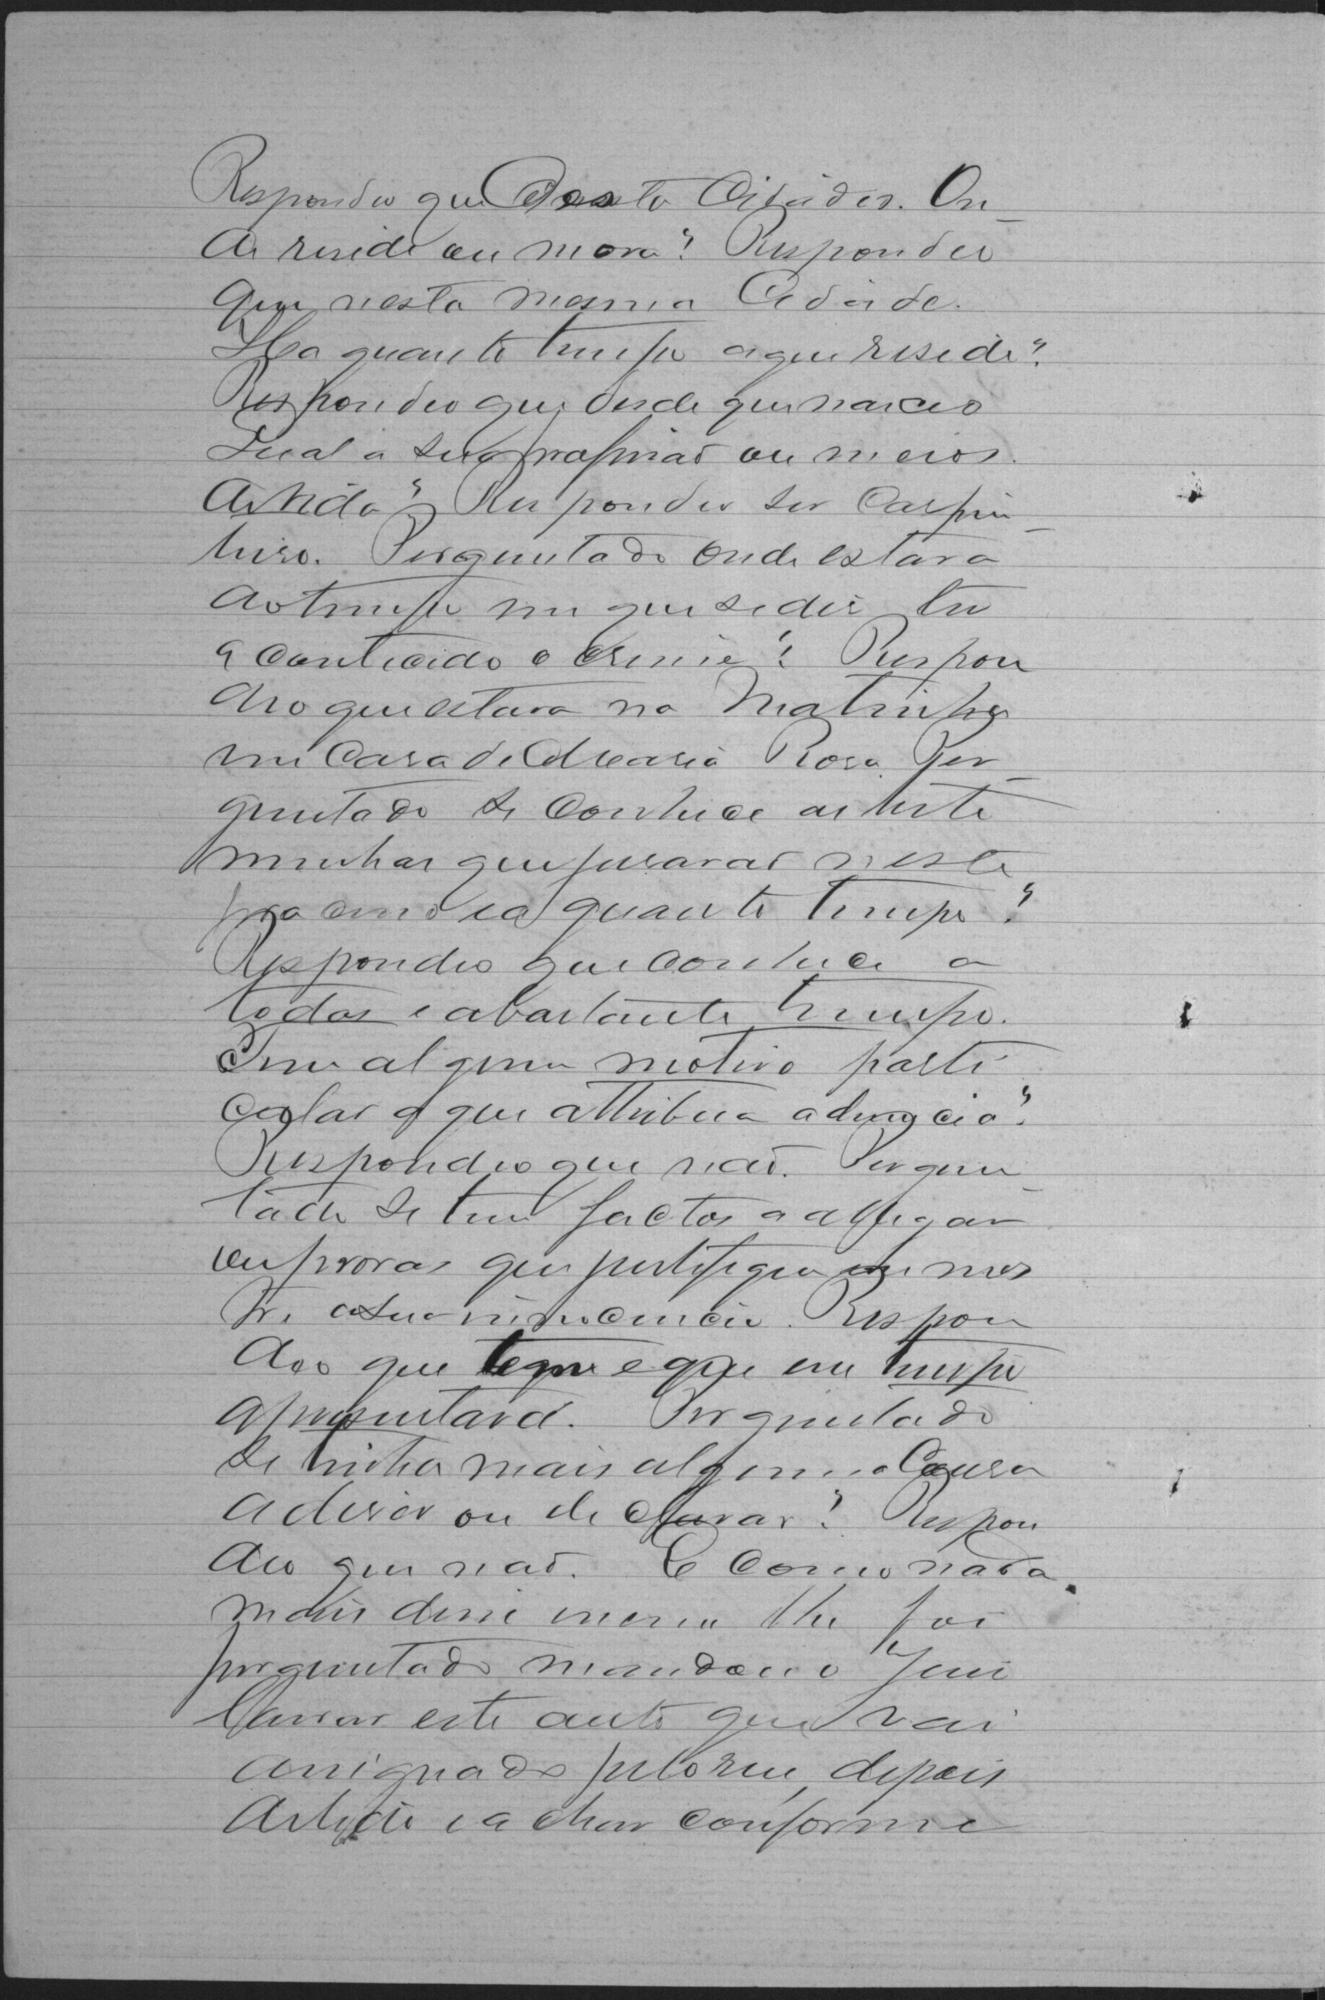 Respondeo que desta Cidade. On-
de reside ou mora? Respondeo
que nesta mesma Cidade.
Ha quanto tempo aqui reside?
Respondeo que desde que nasceo
Qual a sua profissão ou meios
de vida? Respondeo ser Carpin-
teiro. Perguntado onde estava
ao tempo em que se diz ter
acontecido o crime? Respon
deo que estava na Matinha
em casa de Maria Rosa. Per-
guntado se conhece as teste
munhas que juraram neste
processo e a quanto tempo?
Respondeo que conhece a
todas e a bastante tempo.
Tem algum motivo parti
cular a que attribua a denuncia?
Respondeo que não. Pergun-
tado se tem factos a allegar
ou provas que justifiquem ou mos
tre a sua innocencia. Respon
deo que tem e que em tempo
apresentará. Perguntado
se tinha mais alguma Cousa
a diser ou declarar? Respon
deo que não. E como nada
mais disse nem lhe foi
perguntado mandou o Juiz
lavrar este auto que vai
assignado pelo reu, depois
de lido e achar conforme